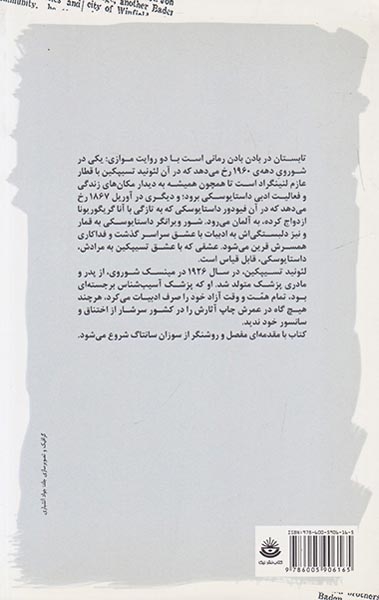 another Eades
city of Winfield
تابستان در بادن بادن رمانی است با دو روایت موازی: یکی در
شوروی دهه‌ی ۱۹۶۰ رخ می‌دهد که در آن لئونید تسیپکین با قطار
عازم لنینگراد است تا همچون همیشه به دیدار مکان‌های زندگی
و فعالیت ادبی داستایوسکی برود؛ و دیگری در آوریل ۱۸۶۷ رخ
می‌دهد که در آن فیودور داستایوسکی که به تازگی با آنا گریگوریونا
ازدواج کرده، به آلمان می‌رود. شور ویرانگر داستایوسکی به قمار
و نیز دلبستگی‌اش به ادبیات با عشق سراسر گذشت و فداکاری
همسرش قرین می‌شود. عشقی که با عشق تسیپکین به مرادش،
داستایوسکی، قابل قیاس است.
لئونید تسیپکین، در سال ۱۹۲۶ در مینسک شوروی، از پدر و
مادری پزشک متولد شد. او که پزشک آسیب‌شناس برجسته‌ای
بود، تمام همّت و وقت آزاد خود را صرف ادبیات می‌کرد، هرچند
هیچ گاه در عمرش چاپ آثارش را در کشور سرشار از اختناق و
سانسور خود ندید.
کتاب با مقدمه‌ای مفصل و روشنگر از سوزان سانتاگ شروع می‌شود.
گرافیک و تصویرسازی جلد: جواد آتشباری
ISBN: 978-600-5906-16-5
9 786005 906165
کتاب نشر نیکا
brothers
Baden